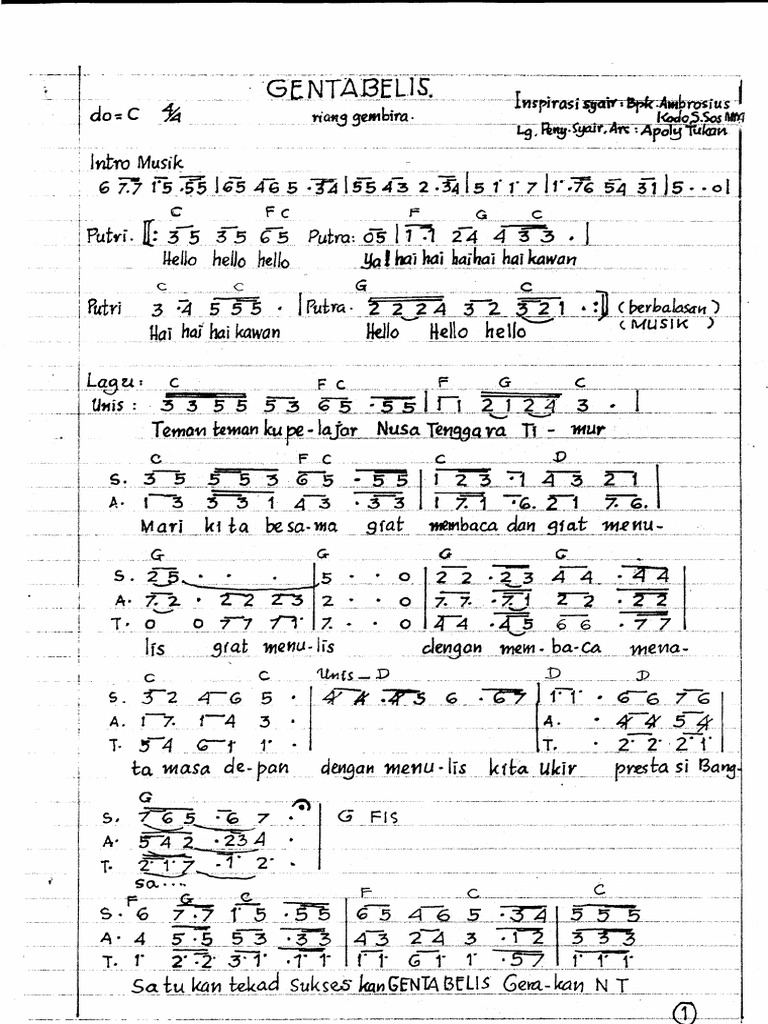 GENTABELIS.
do = C 4/4 riang gembira. Inspirasi syair : Bpk. Ambrosius
Kodo S.Sos MM
Lg, Peny. Syair, Arr : Apoly Tukan
Intro Musik
6 7.7 1 5 .55 | 65 465 .34 | 55 43 2 .34 | 5 1 1 7 | 1 .76 54 31 | 5 . . 0 |
C F C F G C
Putri. [: 35 35 65 Putra: 05 | 1.1 24 4 33 . |
Hello hello hello Ya! hai hai hai hai hai kawan
C C G C
Putri 3 .4 555 . | Putra. 2224 32 321 . :] (berbalasan)
(MUSIK)
Hai hai hai kawan Hello Hello hello
Lagu : C F C F G C
Unis : 3355 53 65 .55 | 11 2124 3 . |
Teman teman ku pe-lajar Nusa Tenggara Ti - mur
C F C C D
S. 35 553 65 .55 | 123 .1 43 21 |
A. 13 331 43 .33 | 17.1 .6. 21 7.6. |
Mari kita besa-ma giat membaca dan giat menu-
G G G G
S. 25 . . . | 5 . . 0 | 22 .23 44 .44 |
A. 7.2 . 22 23 | 2 . . 0 | 7.7. .7.1 22 .22 |
T. 0 0 77 71 | 7. . . 0 | 44 .45 66 .77 |
lis giat menu-lis dengan mem-baca mena-
C C Unis - D D D
S. 32 46 5 . | 44 .45 6 .67 | 11 . 66 76
A. 17. 14 3 . A. . 44 54
T. 54 61 1 . T. . 22 21
ta masa de-pan dengan menu-lis kita Ukir presta si Bang-
G
S. 765 .6 7 . | G FIS
A. 542 .234 .
T. 217 .1 2 .
sa....
F G C F C C
S. 6 7.7 15 .55 | 65 46 5 .34 | 555
A. 4 5.5 53 .33 | 43 24 3 .12 | 333
T. 1 2.2 31 .11 | 11 61 1 .57 | 111
Satu kan tekad Sukses kan GENTABELIS Gera-kan N T
1